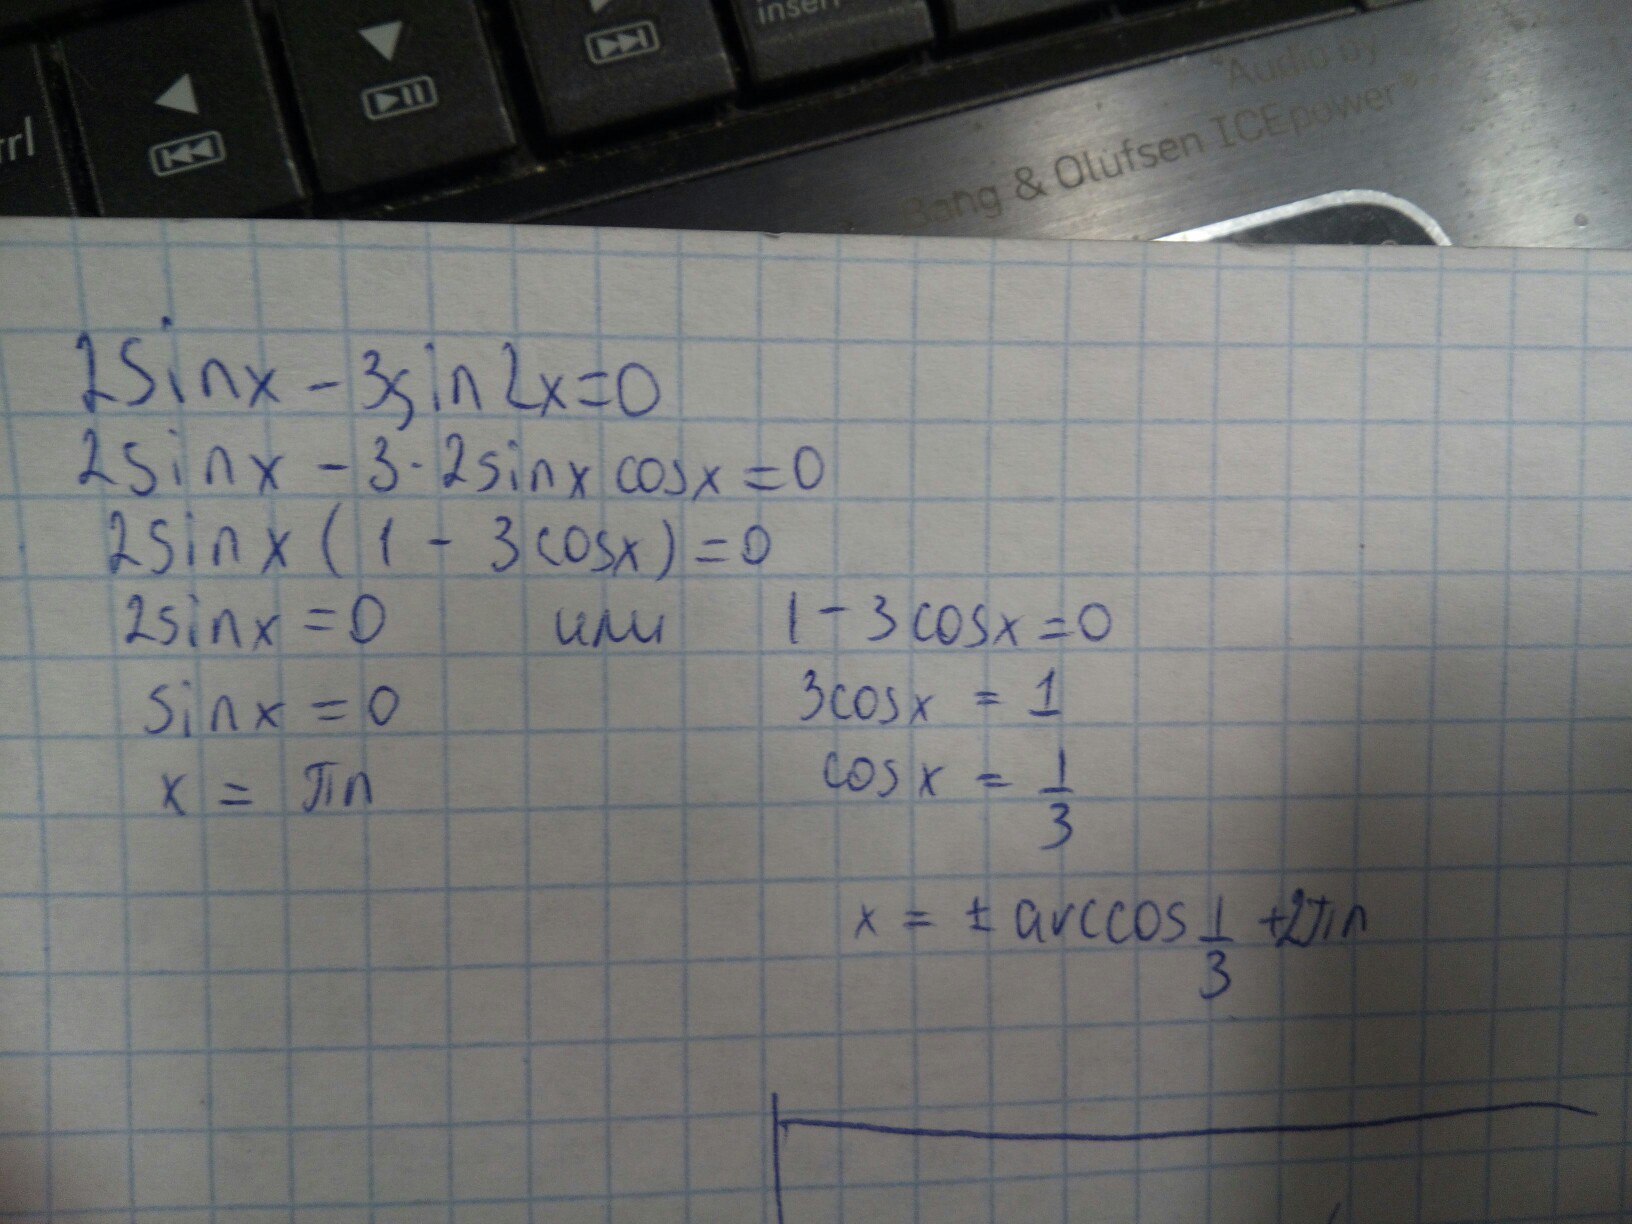 insert
"Audio by
Bang & Olufsen ICEpower®
2sinx - 3sin2x=0
2sinx - 3·2sinx cosx = 0
2sinx (1 - 3cosx) = 0
2sinx = 0 или 1 - 3cosx = 0
sinx = 0 3cosx = 1
x = πn cosx = 1/3
x = ± arccos 1/3 + 2πn